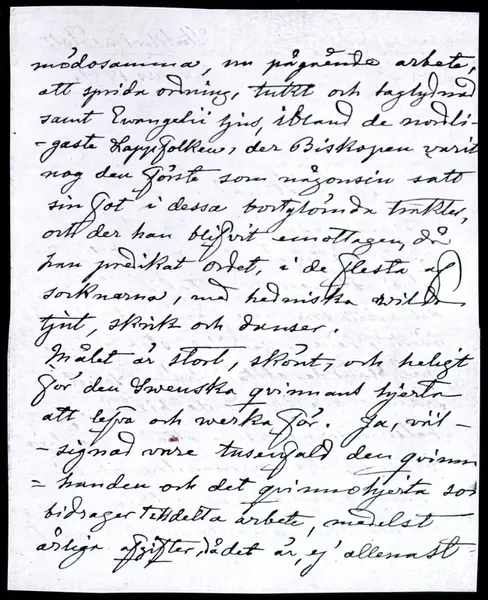 mödosamma, nu pågående arbete,
att sprida ordning, tukt och laglydnad
samt Evangelii ljus, ibland de nordli-
-gaste Lappfolken, der Biskopen varit
nog den förste som någonsin satt
sin fot i dessa bortglömda trakter,
och der han blifvit emottagen, då
han predikat ordet, i de flesta af
socknarna, med hedniska vilda
tjut, skrik och danser.
Målet är stort, skönt, och heligt
för den Swenska qvinnans hjerta
att lefva och werka för. Ja, väl-
-signad vare tusenfald den qvinn
=handen och det qvinnohjerta som
bidrager till detta arbete, medelst
årliga afgifter, då det är, ej allenast